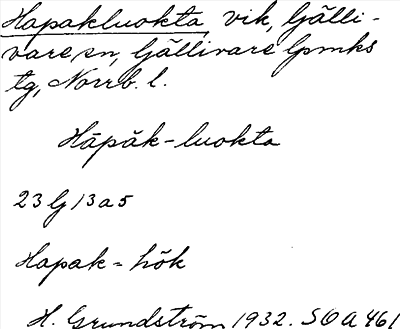 Hapakluokta, vik, Gälli-
vare sn, Gällivare lpmks
tg, Norrb. l.
Hāpăk-luokta
23 G 13 a 5
Hapak = hök
H. Grundström 1932. SOA 461